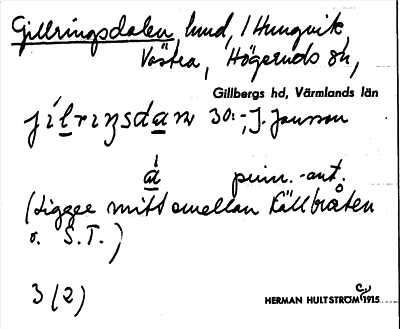 Gillringsdalen, hmd, i Hungvik,
Västra, Högerud sn,
Gillbergs hd, Värmlands län
jílriŋsdaɴ 30:-, J. Jansson
á prim.-ant.
(Ligger mitt emellan Källbråten
o. S.T.)
3 (2)
HERMAN HULTSTRÖM 1915